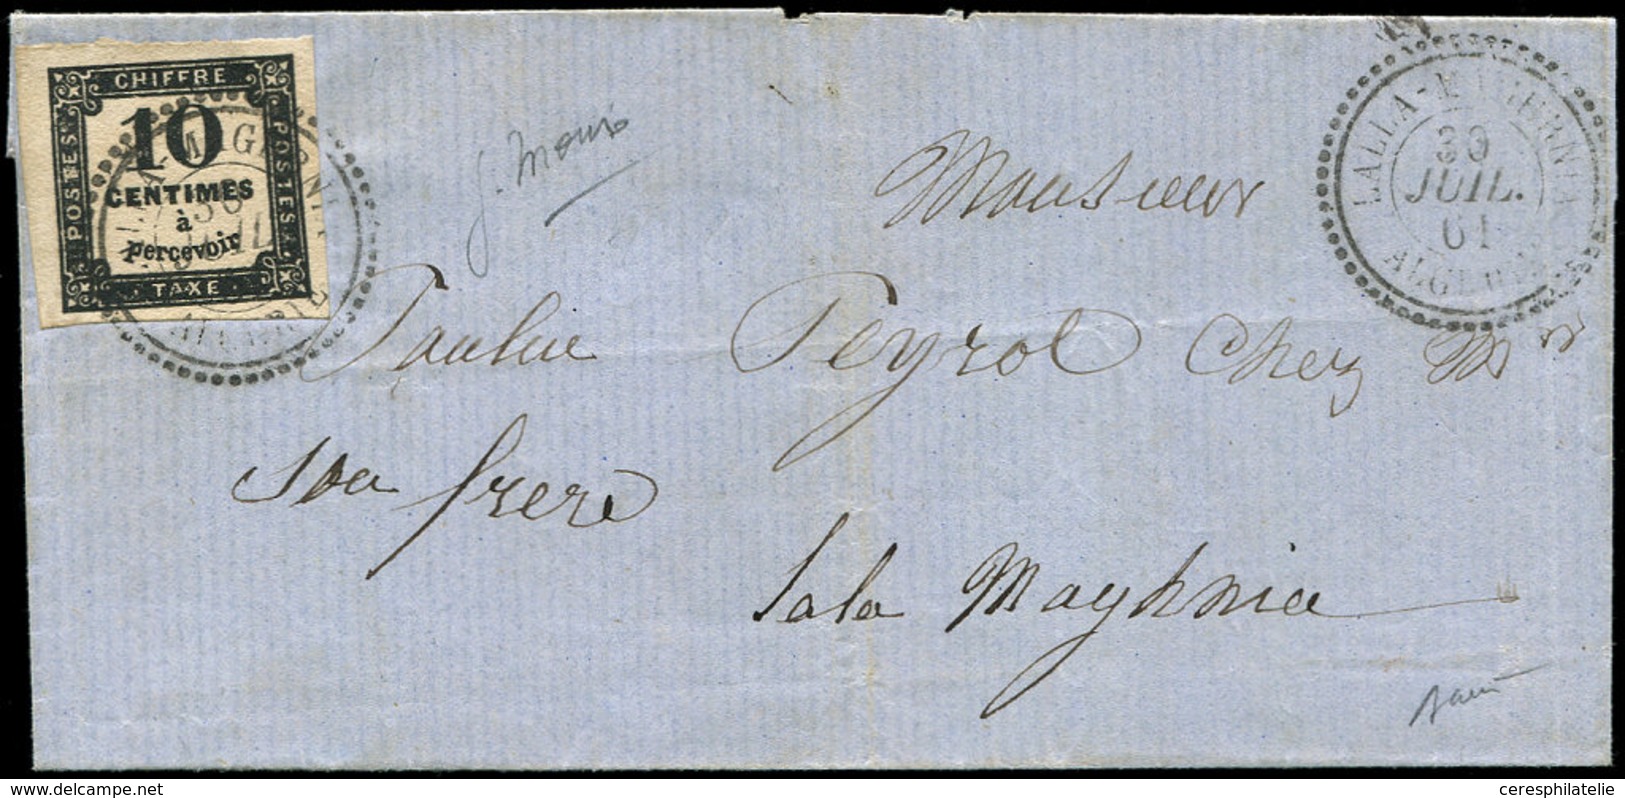 CHIFFRE
POSTES
10
CENTIMES
à
percevoir
POSTES
TAXE
30
JUIL.
LALLA-MAGHRNIA
30
JUIL.
61
ALGERIE
Monsieur
Paulin Peyrol Chez Mr
son frere
Lala Maghnia
ceresphilatelie